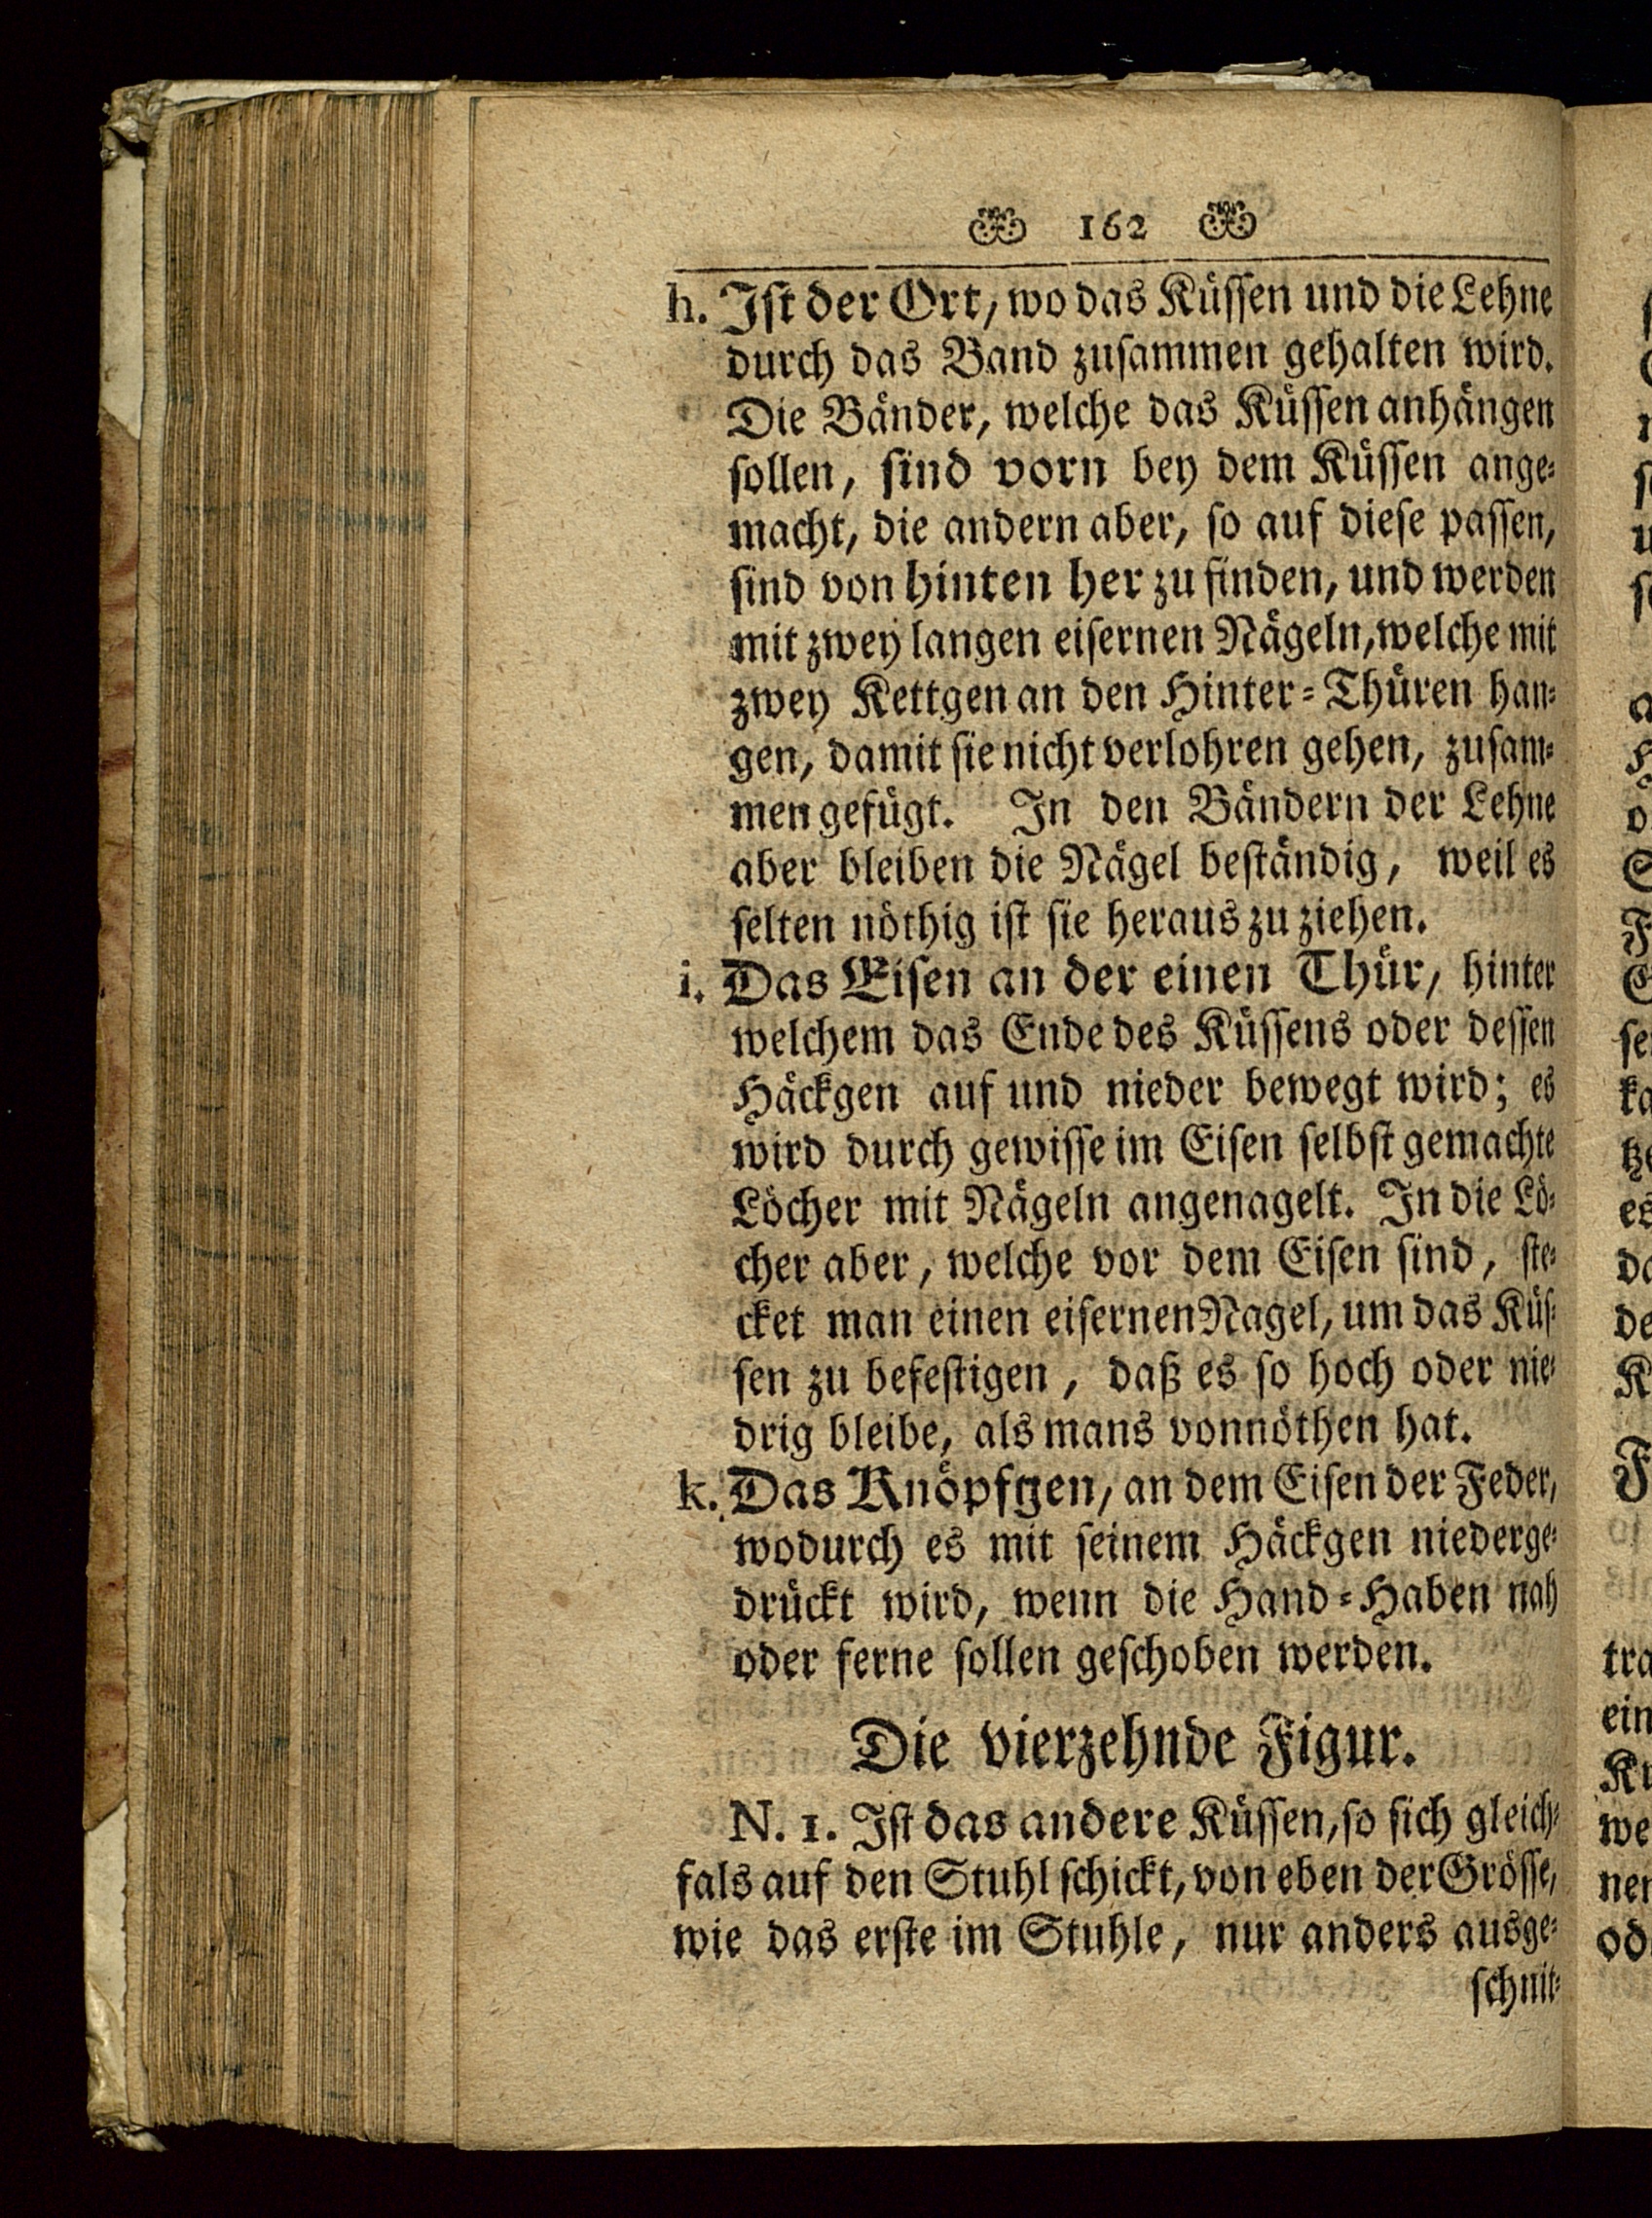 162
h. Ist der Ort, wo das Küssen und die Lehne
durch das Band zusammen gehalten wird.
Die Bänder, welche das Küssen anhängen
sollen, sind vorn bey dem Küssen ange-
macht, die andern aber, so auf diese passen,
sind von hinten her zu finden, und werden
mit zwey langen eisernen Nägeln, welche mit
zwey Kettgen an den Hinter-Thüren han-
gen, damit sie nicht verlohren gehen, zusam-
men gefügt. In den Bändern der Lehne
aber bleiben die Nägel beständig, weil es
selten nöthig ist sie heraus zu ziehen.
i. Das Eisen an der einen Thür, hinter
welchem das Ende des Küssens oder dessen
Häckgen auf und nieder bewegt wird; es
wird durch gewisse im Eisen selbst gemachte
Löcher mit Nägeln angenagelt. In die Lö-
cher aber, welche vor dem Eisen sind, ste-
cket man einen eisernen Nagel, um das Küs-
sen zu befestigen, daß es so hoch oder nie-
drig bleibe, als mans vonnöthen hat.
k. Das Knöpfgen, an dem Eisen der Feder,
wodurch es mit seinem Häckgen niederge-
drückt wird, wenn die Hand-Haben nah
oder ferne sollen geschoben werden.
Die vierzehnde Figur.
N. 1. Ist das andere Küssen, so sich gleich-
fals auf den Stuhl schickt, von eben der Grösse,
wie das erste im Stuhle, nur anders ausge-
schnit-